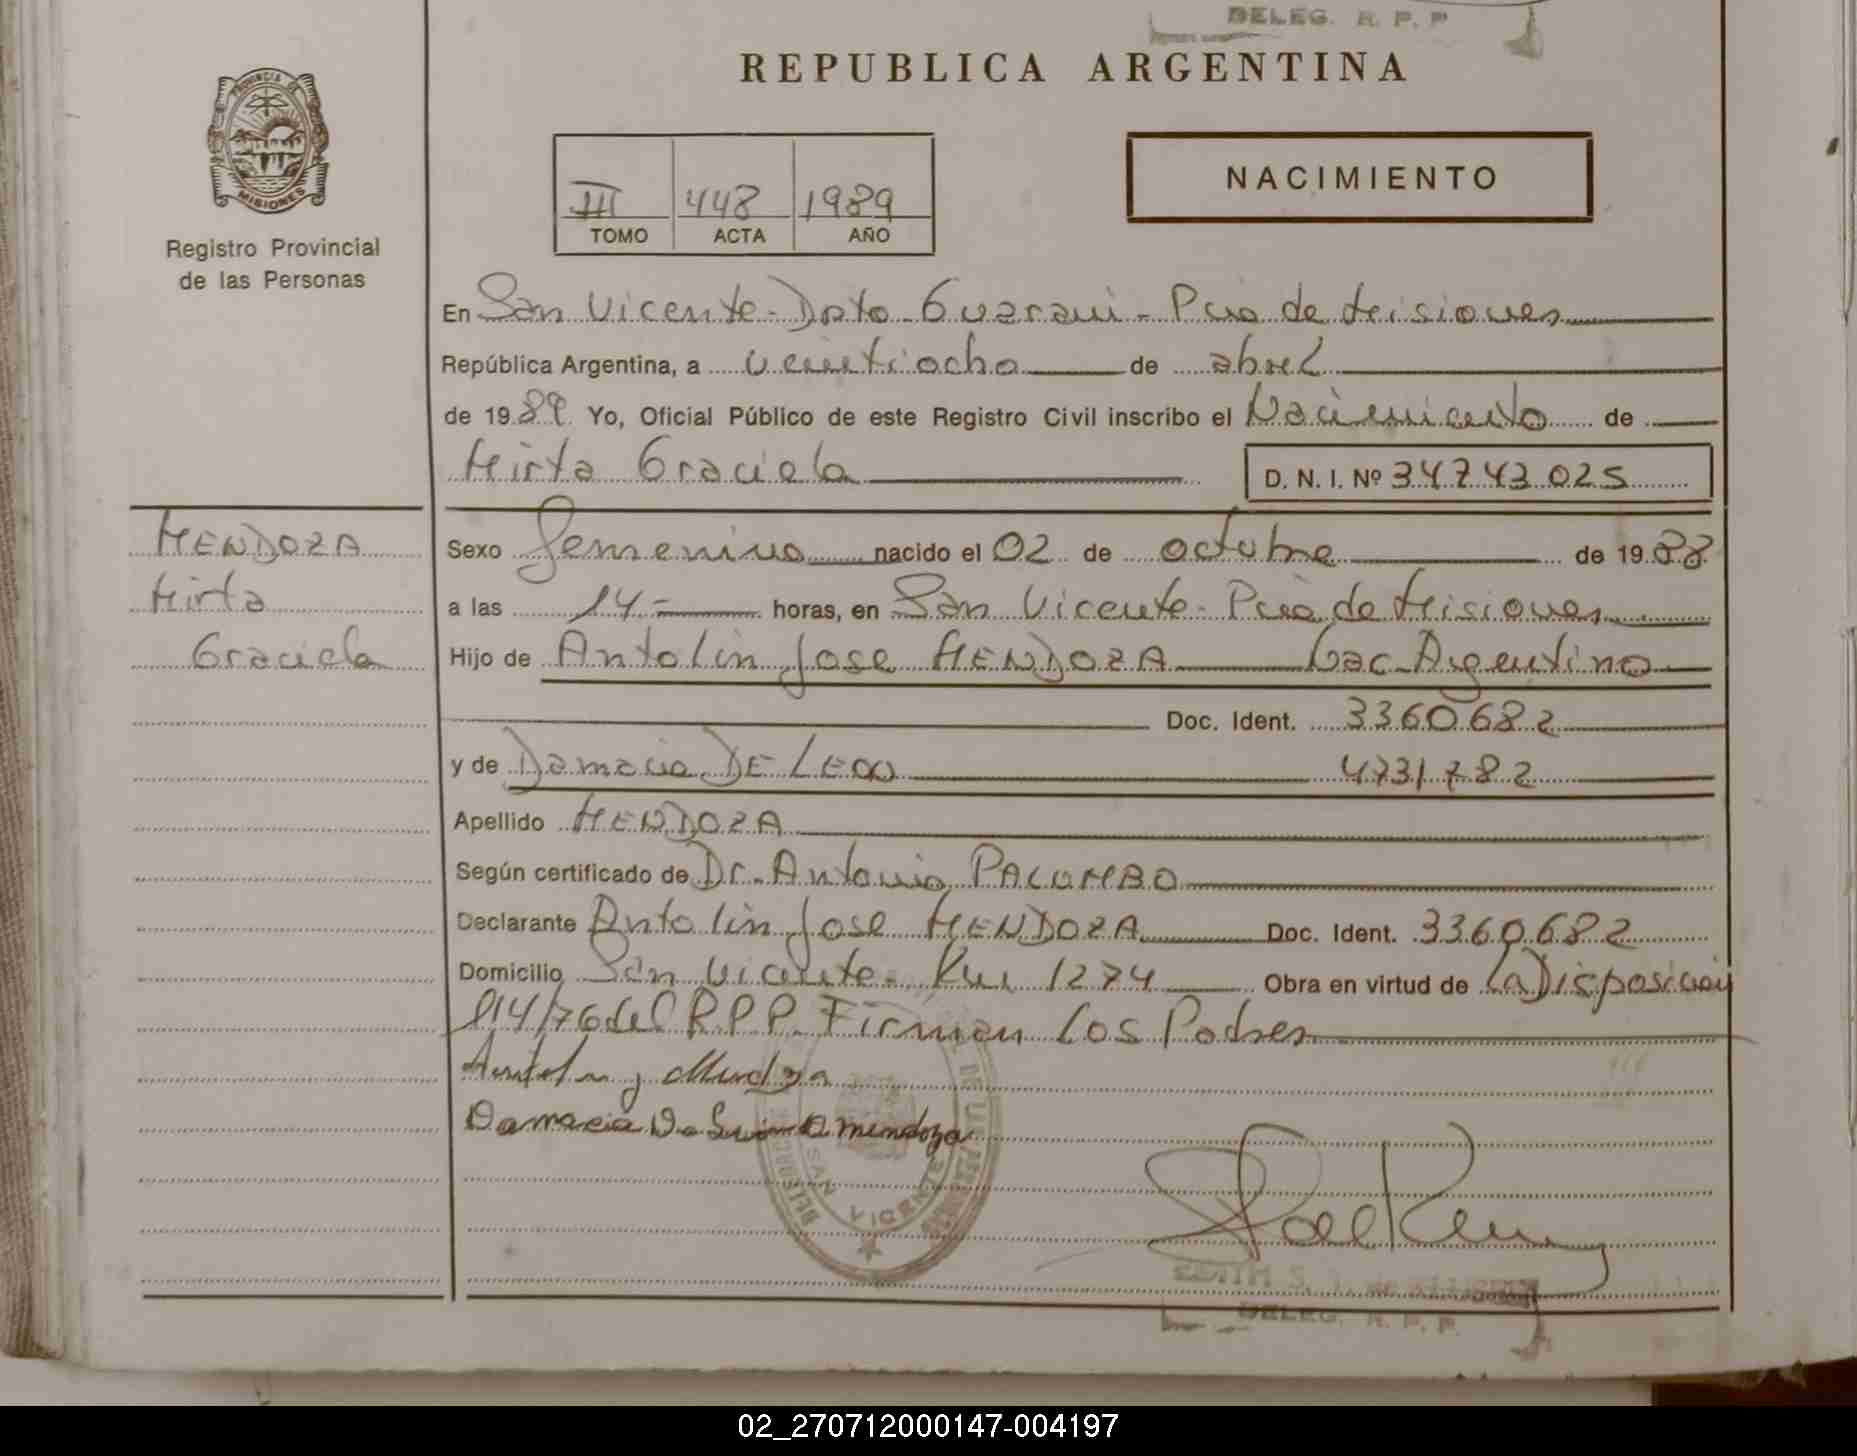 DELEG. R. P. P
REPUBLICA ARGENTINA
PROVINCIA DE
MISIONES
Registro Provincial
de las Personas
III 448 1989
TOMO ACTA AÑO
NACIMIENTO
En San Vicente - Dpto Guarani - Pcia de Misiones
República Argentina, a veintiocho de abril
de 1989 Yo, Oficial Público de este Registro Civil inscribo el Nacimiento de
Mirta Graciela D. N. I. Nº 34743025
MENDOZA
Mirta
Graciela
Sexo femenino nacido el 02 de octubre de 1988
a las 14 - horas, en San Vicente - Pcia de Misiones
Hijo de Antolin Jose MENDOZA Nac. Argentino
Doc. Ident. 3360682
y de Damacia DE LEON 4731782
Apellido MENDOZA
Según certificado de Dr. Antonio PALOMBO
Declarante Antolin Jose MENDOZA Doc. Ident. 3360682
Domicilio San Vicente - Km 1274 Obra en virtud de La Disposición
114/76 del R.P.P. Firman Los Padres
Antolin J Mendoza
Damacia De mendoza
SAN VICENTE
EDITH S.
DELEG. R. P. P.
02_270712000147-004197